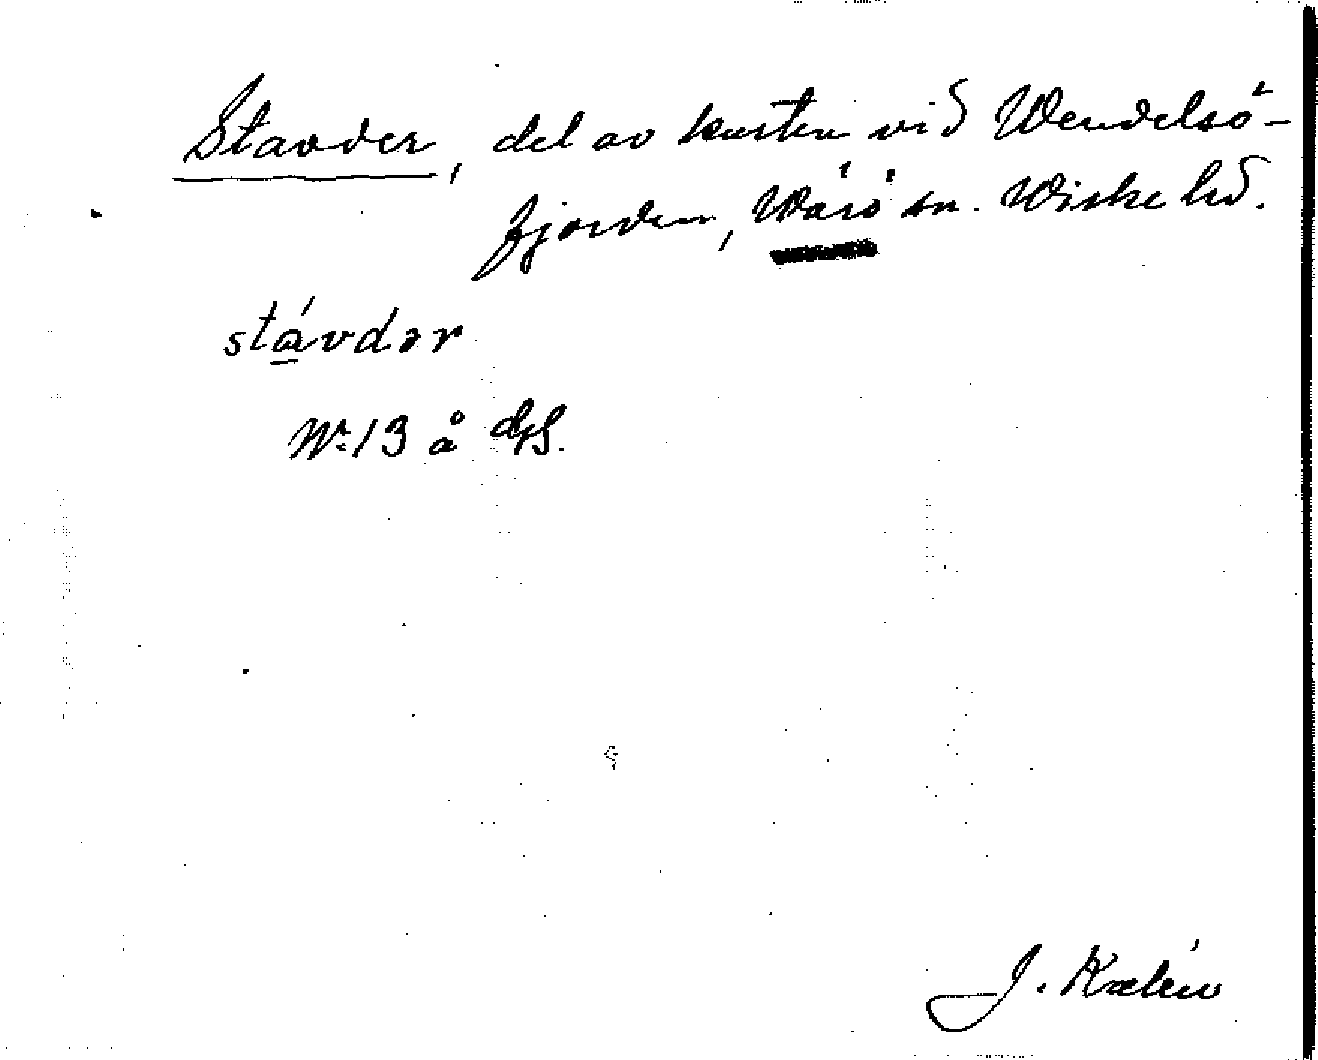 Stavder, del av kusten vid Wendelsö-
fjorden, Wärö sn. Wiske hd.
stávdər
Nr 13 å
J. Kalén